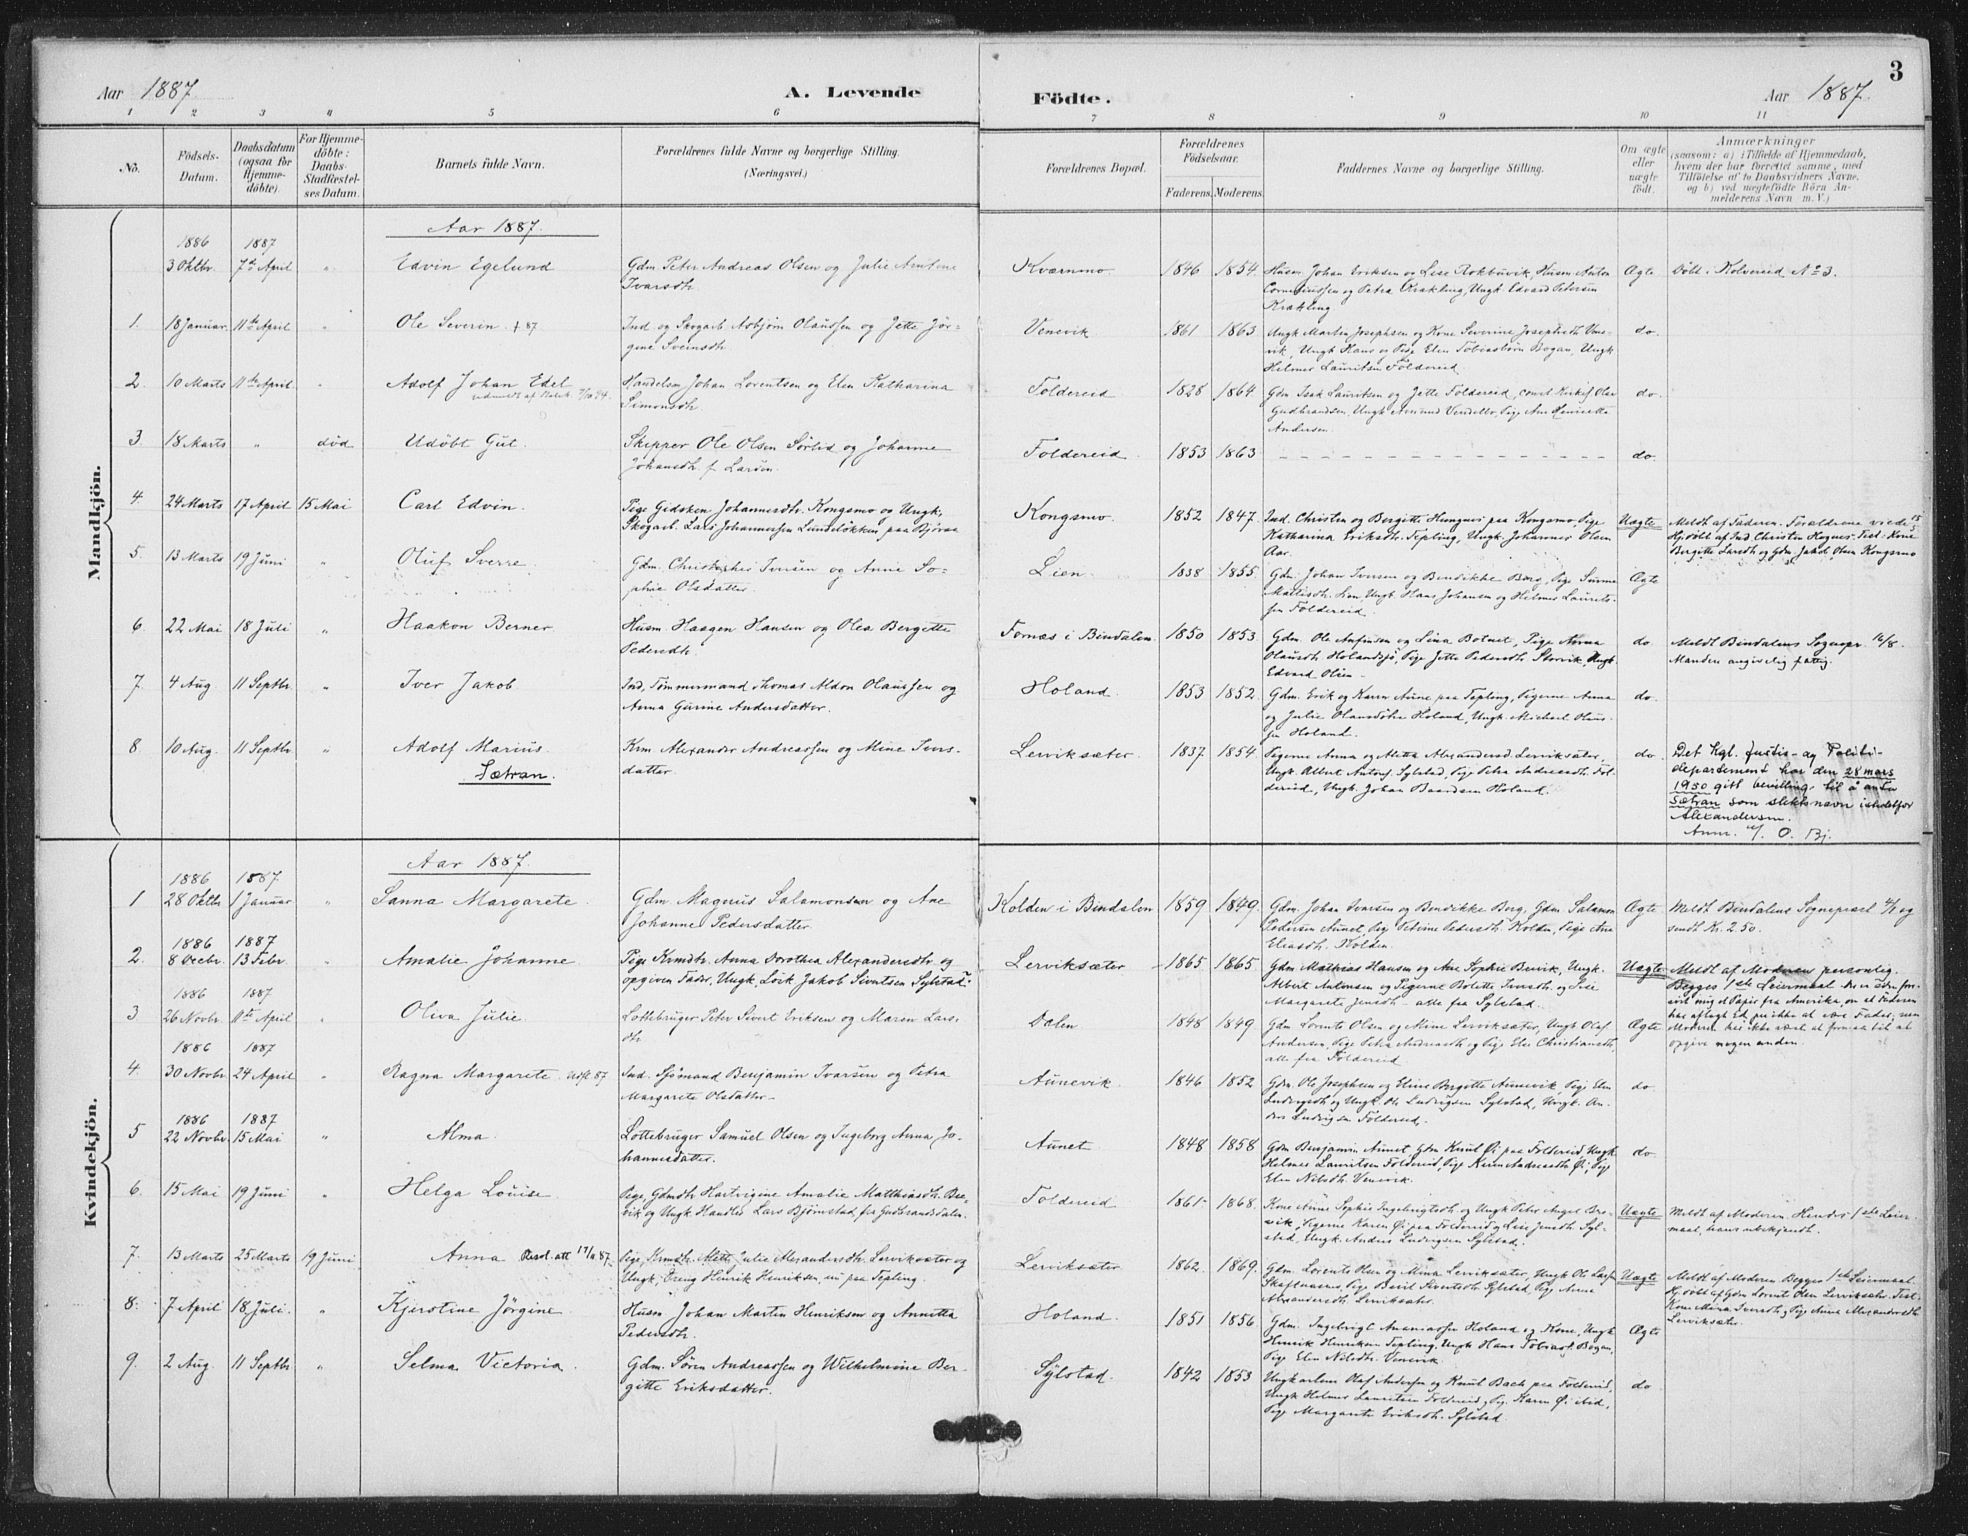 3
Aar 1887
A. Levende Födte.
Aar 1887.
1 2 3 4 5 6 7 8 9 10 11
No.
Födsels-
Datum.
Daabsdatum
(ogsaa for
Hjemme-
döbte).
For Hjemme-
döbte:
Daabs-
Stadfæstel-
ses Datum.
Barnets fulde Navn.
Forældrenes fulde Navne og borgerlige Stilling.
(Næringsvei.)
Forældrenes Bopæl.
Forældrenes
Födselsaar.
Faderens. Moderens.
Faddernes Navne og borgerlige Stilling.
Om ægte
eller
uægte
födt.
Anmærkninger
(saasom: a) i Tilfælde af Hjemmedaab,
hvem der har forrettet samme, med
Tilföielse af to Daabsvidners Navne,
og b) ved uægtefödte Börn An-
melderens Navn m. V.)
Mandkjön.
Aar 1887.
1886 1887
3 Oktbr. 7de April " Edvin Egelund
Gdm. Peter Andreas Olsen og Julie Antone
Ivarsdtr.
Kværnmo 1846 1854.
Husm. Johan Eriksen og Lise Rokbuvik, Husm. Anton
Corneliussen og Petra Krækling, Ungk. Edvard Petersen
Krækling
Ægte Döbt i Kolvereid No 3.
1. 18 Januar. 11te April " Ole Severin. + 87
Ind. og Skogarb. Asbjörn Olaussen og Jette Jör-
gine Svensdtr.
Venevik 1861 1863.
Ungk. Morten Josephsen og Kone Severine Josephsdtr. Vene-
vik, Ungk. Hans og Pige Elen Tobiasbörn Bogan, Ungk.
Helmer Lauritsen Foldereid.
do.
2. 10 Marts 11te April " Adolf Johan Edel
Handelsm. Johan Lorentsen og Elen Katharina
Simonsdtr.
Foldereid 1828 1864.
Gdm. Isak Lauritsen og Jette Foldereid, const. Kirkes. Olav
Gudbrandsen, Ungk. Vendelbo, Pige Ane Henriette
Andersen.
do.
3 18 Marts " död Udöbt Gut.
Skipper Ole Olsen Sörlid og Johanne
Johansdtr. f. Larsen.
Foldereid. 1853 1863 do.
4. 24 Marts 17 April 15 Mai Carl Edvin.
Pige Gidsken Johannesdtr. Kongsmo og Ungk.
Skogarb. Lars Johannessen Lundelökken, paa Björaa
Kongsmo. 1852 1847.
Ind. Christen og Bergitte Hougnes paa Kongsmo, Pige
Katharina Eriksdtr. Tepling, Ungk. Johannes Olsen
Aar.
Uægte Meldt af Faderen. Forældrene viede
Hj. döbt af Ind. Christen Hognes. Test: Kone
Bergitte Larsdtr. og Gdm. Jakob Olsen Kongsmo
5. 13 Marts 19 Juni " Oluf Sverre.
Gdm. Christopher Iversen og Anne So-
phie Olsdatter.
Lien. 1838 1855.
Gdm. Johan Iversen og Bendikke Berg, Pige Sirine
Mattisdtr. Lien, Ungk. Hans Johansen og Helmer Laurit-
sen Foldereid.
Ægte
6 22 Mai 18 Juli " Haakon Berner
Husm. Haagen Hansen og Olea Bergitte
Pedersdtr.
Fornæs i Bindalen. 1850 1853.
Gdm. Ole Anfinsen og Lina Botnet, Pige Anna
Olausdtr. Holandsjö, Pige Jette Pedersdtr. Storvik, Ungk.
Edvard Olsen.
do Meldt Bindalens Sognepr. 16/8.
Manden angivelig fattig.
7. 4 Aug. 11 Septbr. " Iver Jakob.
Ind. Tömmermand Thomas Aldon Olaussen og
Anna Gurine Andersdatter.
Holand. 1853 1852.
Gdm. Erik og Karen Aune paa Tepling, Pigerne Anna
og Julie Olausdötre Holand, Ungk. Michael Olaus-
sen Holand.
do.
8 10 Aug. 11 Septbr. " Adolf Marius.
Sætran.
Krm. Alexander Andreassen og Mine Ivers-
datter.
Lerviksæter. 1837. 1854.
Pigerne Anna og Aletta Alexandersd. Lerviksæter,
Ungk. Albert Antons. Sylstad, Pige Petra Andreasdtr. Fol-
dereid, Ungk. Johan Baardsen Holand.
do. Det kgl. justis- og Politi-
departement har den 28 mars
1930 gitt bevilling til å anta
Sætran som slektsnavn istedetfor
Alexandersen.
Anm. v/ O. Bj.
Kvindekjön.
Aar 1887.
1886 1887
1 28 Oktbr. 1 Januar " Sanna Margarete.
Gdm. Magnus Salamonsen og Ane
Johanne Pedersdatter.
Kolden i Bindalen 1859 1849.
Gdm. Johan Ivarsen og Bendikke Berg, Gdm. Salamon
Pedersen Aunet, Pige Petrine Pedersdtr. Kolden, Pige Ane
Eliasdtr. Kolden.
Ægte Meldt Bindalens Sognepræst og
sendt Kr. 2.50.
1886 1887
2. 8 Decbr. 13 Febr. " Amalie Johanne
Pige Krmdtr. Anna Dorothea Alexandersdtr. og
opgiven Fader, Ungk. Losk. Jakob Sivertsen Sylstad.
Lerviksæter 1865 1865
Gdm. Mathias Hansen og Ane Sophie Bervik, Ungk.
Albert Antonsen og Pigerne Bolette Iversdtr. og Lise
Margarete Jensdtr. - alle fra Sylstad.
Uægte Meldt af Moderen personlig.
Begges 1ste Leiermaal.
Papir fra Amerika, om at Faderen
har aflagt Ed paa ikke at være Fader; men
Moderen har ikke været at formaa til at
opgive nogen anden.
1886 1887
3 26 Novbr. 11te April " Oliva Julie.
Lottebruger Peter Sivert Eriksen og Maren Lars-
dtr.
Dalen 1848 1849
Gdm. Lorents Olsen og Mine Lerviksæter, Ungk. Olaf
Andersen, Pige Petra Andreasdtr. og Pige Elen Christiansdtr.,
alle fra Foldereid.
Ægte
1886 1887
4. 30 Novbr. 24 April " Ragna Margarete. Udfl. 87
Ind. Sjömand Benjamin Ivarsen og Petra
Margarete Olsdatter.
Aunevik. 1846 1852
Gdm. Ole Josephsen og Eline Bergitte Aunevik, Pige Elen
Ludvigsdtr. og Ungk. Ole Ludvigsen Sylstad, Ungk. An-
ders Ludvigsen Foldereid.
do.
1886 1887
5 22 Novbr. 15 Mai " Alma.
Lottebruger Samuel Olsen og Ingeborg Anna Jo-
hannesdatter.
Aunet 1848 1858
Gdm. Benjamin Aunet, Gdm. Knut Öi paa Foldereid, Ungk.
Helmer Lauritsen Foldereid, Pige Karen Andreasdtr. Öi, Pige
Elen Nilsdtr. Venevik.
do
6. 15 Mai 19 Juni " Helga Louise
Pige, Gdmdtr. Hartvigine Amalie Matthiasdtr. Ber-
vik og Ungk. Handler Lars Björnstad, fra Gudbrandsdalen.
Foldereid 1861 1868.
Kone Anne Sophie Ingebrigtsdtr. og Ungk. Peter Angel Ber-
vik, Pigerne Karen Öi paa Foldereid og Lise Jensdtr. Syl-
stad, Ungk. Anders Ludvigsen Sylstad.
Uægte Meldt af Moderen. Hendes 1ste Leier-
maal, hans ubekjendt.
7. 13 Marts 25 Marts 19 Juni Anna
Pige, Krmdtr. Alette Julie Alexandersdtr. Lerviksæter og
Ungk. Dreng Henrik Henriksen, nu paa Tepling.
Lerviksæter 1862. 1869.
Gdm. Lorents Olsen og Mina Lerviksæter, Ungk. Ole Larsen
Skaftnæsset, Pige Beril Sivertsdtr. Sylstad, Pige Anne
Alexandersdtr. Lerviksæter.
Uægte Meldt af Moderen. Begges 1ste Leiermaal.
Hj. döbt af Gdm. Lorents Olsen Lerviksæter. Test:
Kone Mina Iversdtr. og Pige Anne Alexandersdtr.
Lerviksæter.
8. 7 April 18 Juli. " Kjerstine Jörgine
Husm. Johan Martin Henriksen og Annetta
Pedersdtr.
Holand. 1851 1856.
Gdm. Ingebrigt Ananiassen Holand og Kone, Ungk.
Henrik Henriksen Tepling, Ungk. Hans Tobias. Bogan,
Pige Elen Nilsdtr. Venevik.
Ægte
9. 2 Aug. 11 Septbr " Selma Victoria.
Gdm. Sören Andreassen og Wilhelmine Ber-
gitte Eriksdatter.
Sylstad. 1842 1853
Ungkarlene Olaf Andersen og Knut Bach paa Foldereid,
Ungk. Helmer Lauritsen Foldereid, Pig. Karen Öi ibid,
Pige Margarete Eriksdtr. Sylstad.
do.